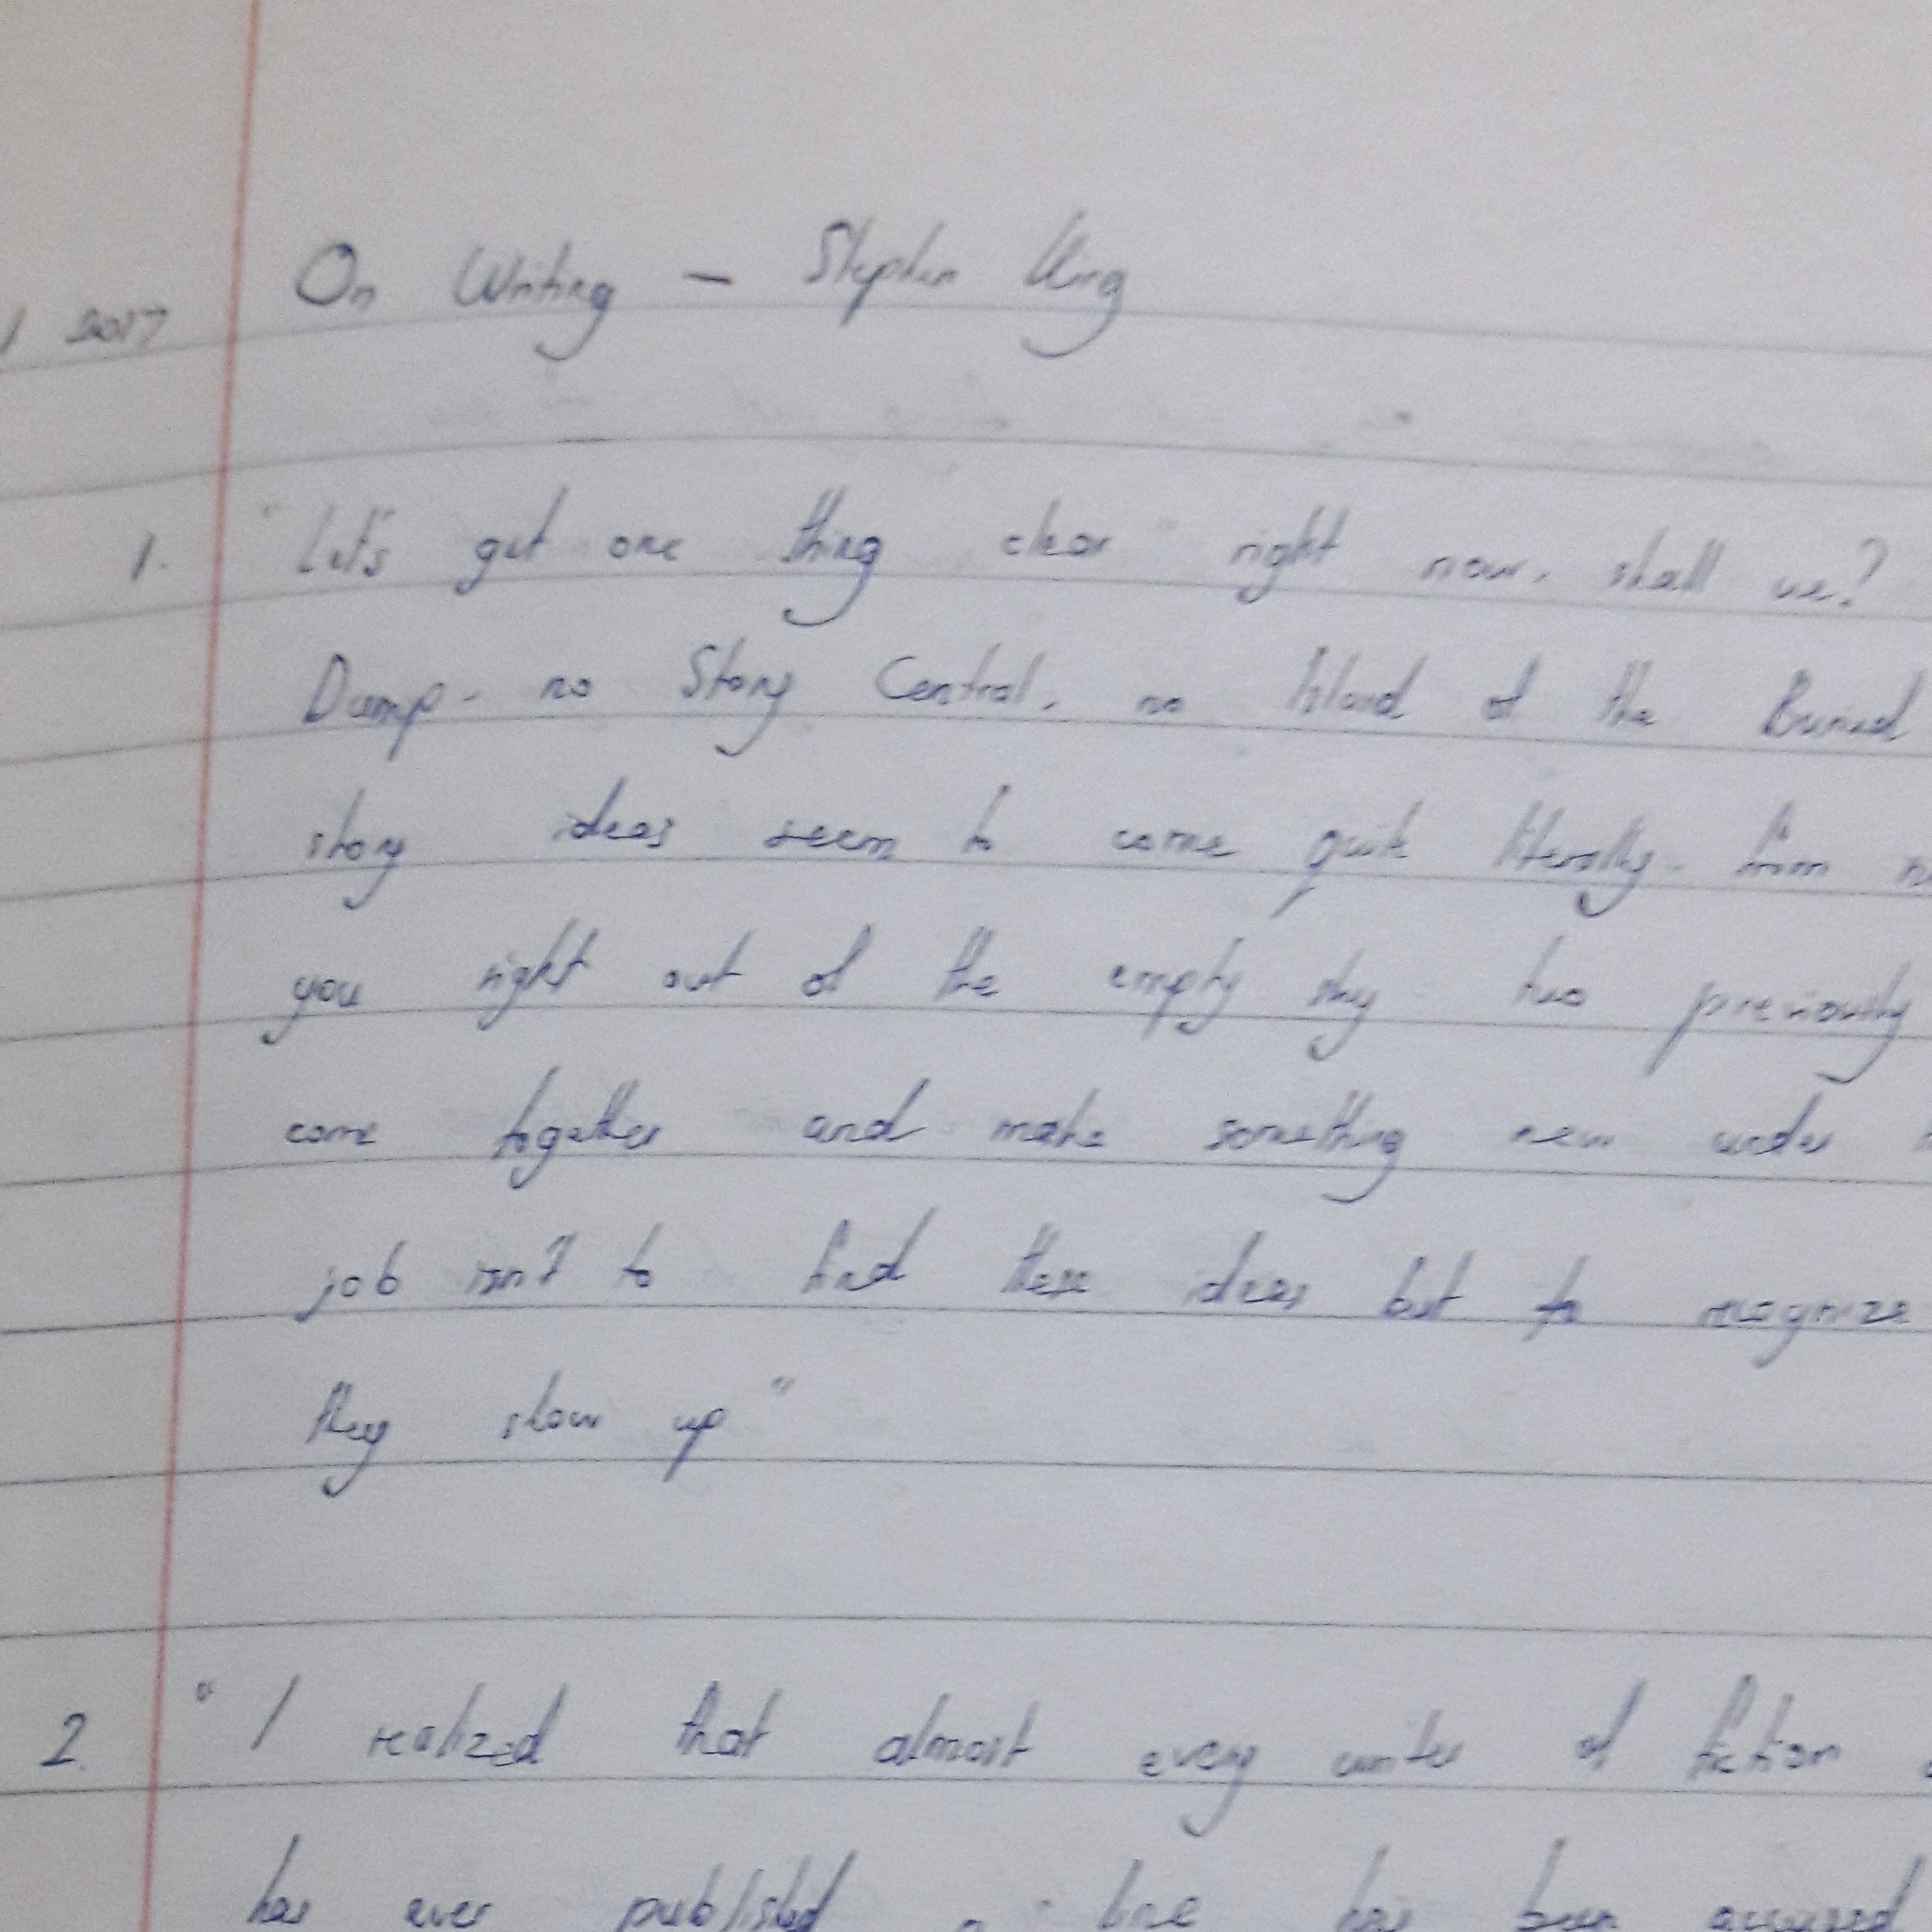 2017 On Writing - Stephen King
1. "Let's get one thing clear right now, shall we?
Dump, no Story Central, no Island of the Buried
story ideas seem to come quite literally from
you right out of the empty sky two previously
come together and make something new under
job isn't to find these ideas but to recognize
they show up"
2. "I realized that almost every writer of fiction
has ever published a line has been accused